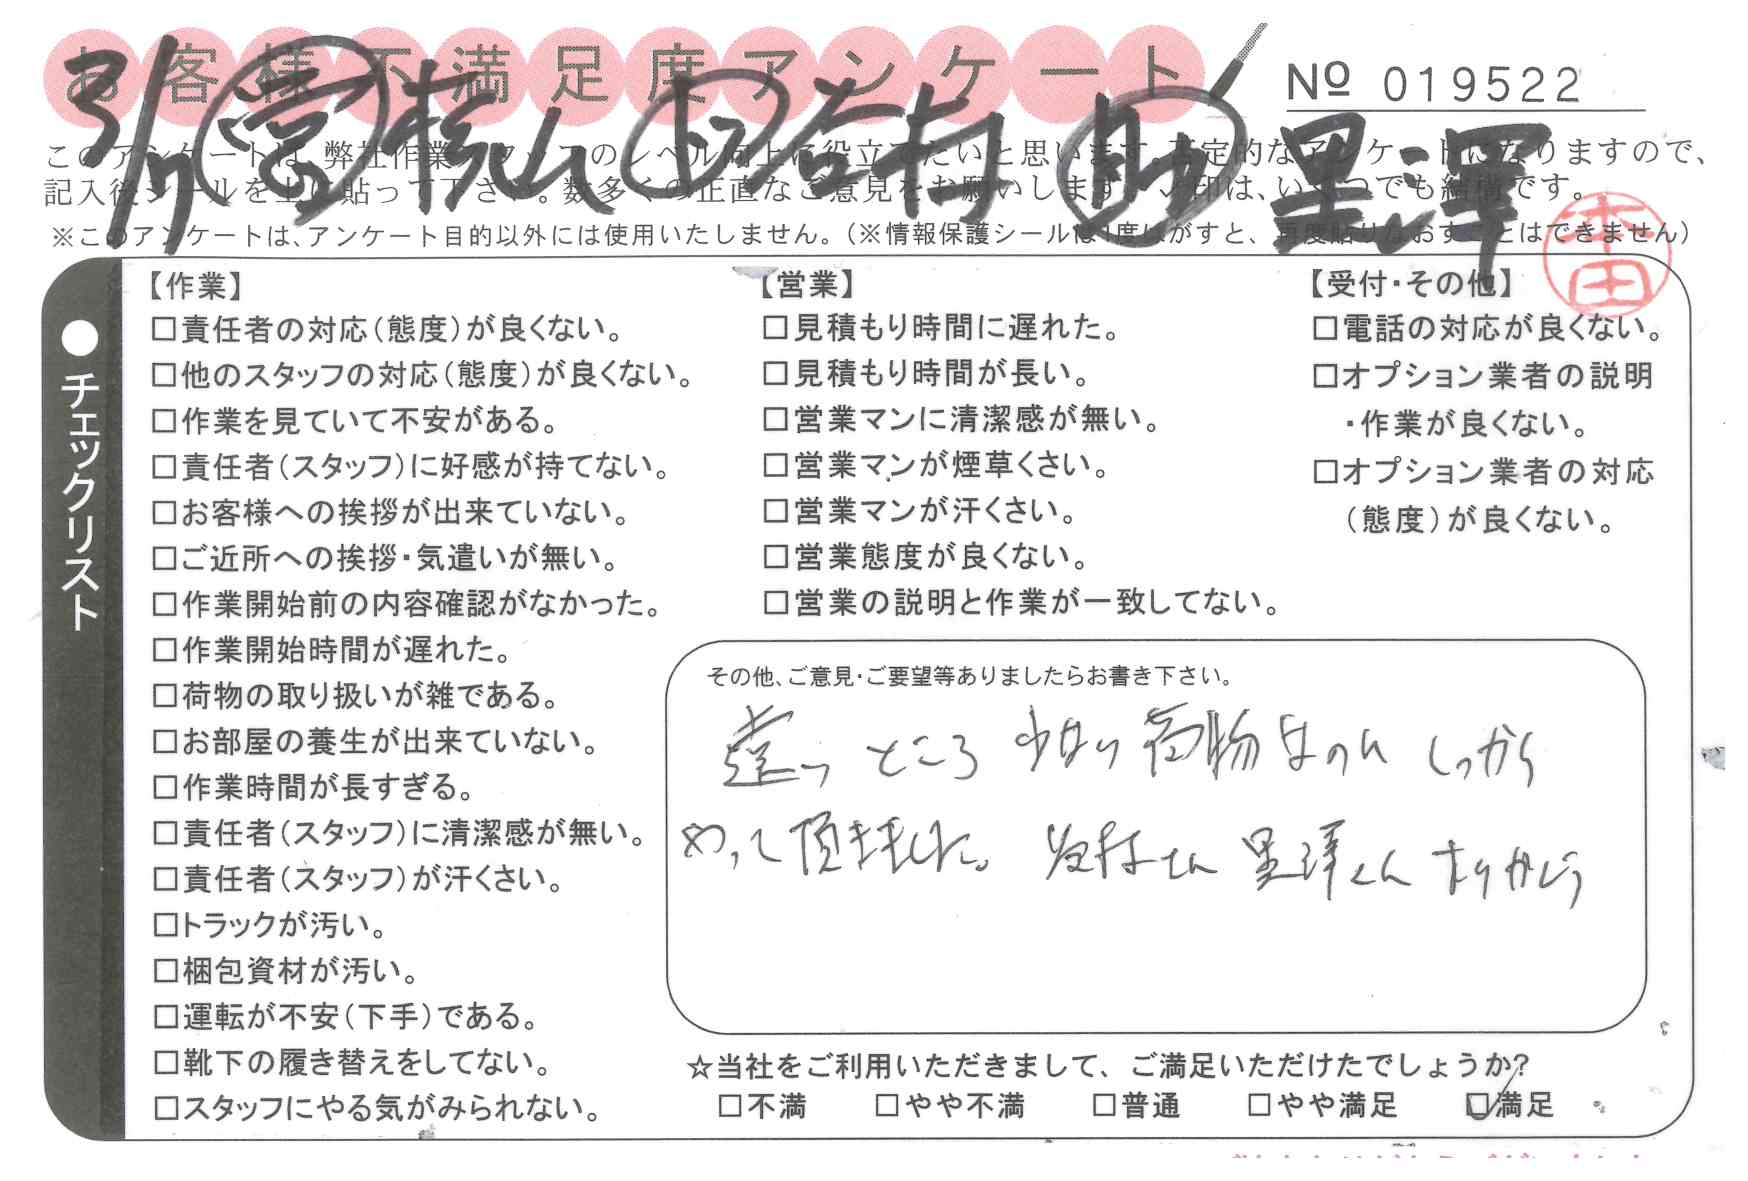 お客様不満足度アンケート
№ 019522
3/7 営 横山 岩村 助 黒澤
このアンケートは、弊社作業スタッフのレベル向上に役立てたいと思います。否定的なアンケートになりますので、
記入後シールを上に貼って下さい。数多くの正直なご意見をお願いします。✓印は、いくつでも結構です。
※このアンケートは、アンケート目的以外には使用いたしません。(※情報保護シールは1度はがすと、再度貼りなおすことはできません)
本田
●チェックリスト
【作業】
□責任者の対応(態度)が良くない。
□他のスタッフの対応(態度)が良くない。
□作業を見ていて不安がある。
□責任者(スタッフ)に好感が持てない。
□お客様への挨拶が出来ていない。
□ご近所への挨拶・気遣いが無い。
□作業開始前の内容確認がなかった。
□作業開始時間が遅れた。
□荷物の取り扱いが雑である。
□お部屋の養生が出来ていない。
□作業時間が長すぎる。
□責任者(スタッフ)に清潔感が無い。
□責任者(スタッフ)が汗くさい。
□トラックが汚い。
□梱包資材が汚い。
□運転が不安(下手)である。
□靴下の履き替えをしてない。
□スタッフにやる気がみられない。
【営業】
□見積もり時間に遅れた。
□見積もり時間が長い。
□営業マンに清潔感が無い。
□営業マンが煙草くさい。
□営業マンが汗くさい。
□営業態度が良くない。
□営業の説明と作業が一致してない。
【受付・その他】
□電話の対応が良くない。
□オプション業者の説明
・作業が良くない。
□オプション業者の対応
(態度)が良くない。
その他、ご意見・ご要望等ありましたらお書き下さい。
遠いところ 少ない荷物なのに しっかり
やって頂きました。岩村さん 黒澤くん ありがとう
☆当社をご利用いただきまして、ご満足いただけたでしょうか?
□不満 □やや不満 □普通 □やや満足 ☑満足